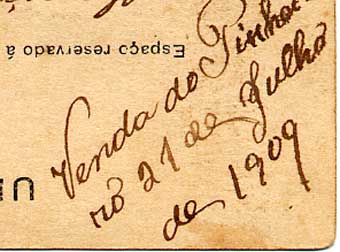 Venda do Pinhei-
ro 21 de Julho
de 1909
Espaço reservado á